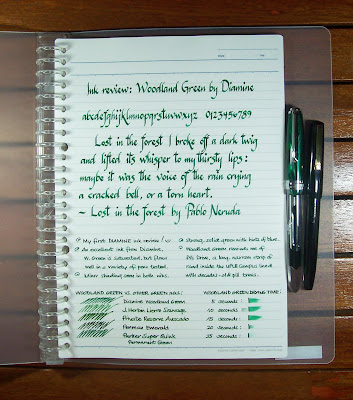 Ink review: Woodland Green by Diamine
abcdefghijklmnopqrstuvwxyz 0123456789
Lost in the forest I broke off a dark twig
and lifted its whisper to my thirsty lips:
maybe it was the voice of the rain crying
a cracked bell, or a torn heart.
~ Lost in the forest by Pablo Neruda
My first DIAMINE ink review / use
An excellent ink from Diamine.
W. Green is saturated, but flows
well in a variety of pens tested.
Minor shading seen in wide nibs.
Strong, solid green with hints of blue.
Woodland Green reminds me of
Pili Drive, a long, narrow strip of
road inside the UPLB Campus lined
with decades-old pili trees.
WOODLAND GREEN VS. OTHER GREEN INKS:
Diamine Woodland Green
J. Herbin Lierre Sauvage
Private Reserve Avocado
Permanent Green
WOODLAND GREEN DRYING TIME:
5 seconds:
10 seconds:
15 seconds:
20 seconds:
25 seconds: